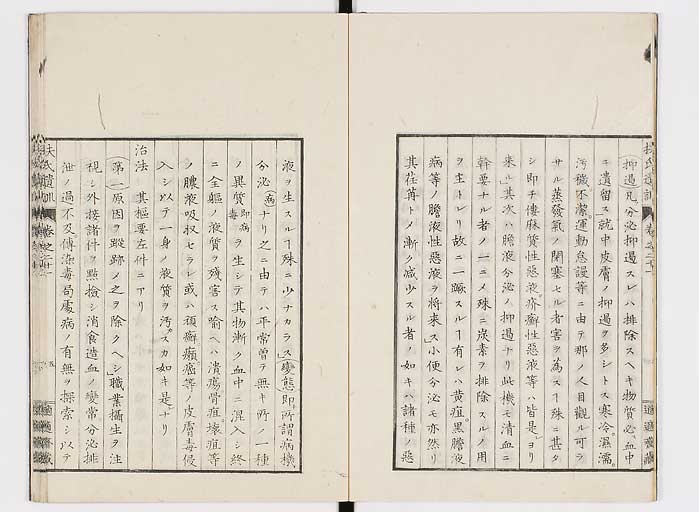 (抑遏)凡分泌抑遏スレハ排除スヘキ物質必血中
ニ遺留ス就中皮膚ノ抑遏ヲ多シトス寒冷濕濡
汚穢不潔運動怠謾等ニ由テ那ノ人目觀ル可ラ
サル蒸發氣ノ閉塞セル者害ヲ為スヿ殊ニ甚タ
シ即チ僂麻質性惡液疥癬性惡液等ハ皆是ヨリ
来ル」其次ハ膽液分泌ノ抑遏ナリ此機モ清血ニ
幹要ナル者ノ一ニメ殊ニ炭素ヲ排除スルノ用
ヲ主トレリ故ニ一蹶スルヿ有レハ黄疸黒膽液
病等ノ膽液性惡液ヲ将来ス」小便分泌モ亦然リ
其荏苒トメ漸ク減少スル者ノ如キハ諸種ノ惡
扶氏遺訓 卷之二十一
適適齋藏
液ヲ生スルヿ殊ニ少ナカラス(變態)即所謂病機
分泌(病)ナリ之ニ由テハ平常曽テ無キ所ノ一種
ノ異質即病毒ヲ生シテ其物漸ク血中ニ混入シ終
ニ全軀ノ液質ヲ殘害ス喻ヘハ潰瘍骨疽壊疽等
ノ膿液吸収セラレ或ハ頑癬癩瘡等ノ皮膚毒侵
入シ以テ一身ノ液質ヲ汚スカ如キ是ナリ
治法 其樞要左件ニアリ
(第一)原因ヲ蹤跡メ之ヲ除クヘシ」職業攝生ヲ注
視シ外接諸件ヲ點撿シ消食造血ノ變常分泌排
泄ノ過不及傳染毒局處病ノ有無ヲ探索シ以テ
扶氏遺訓